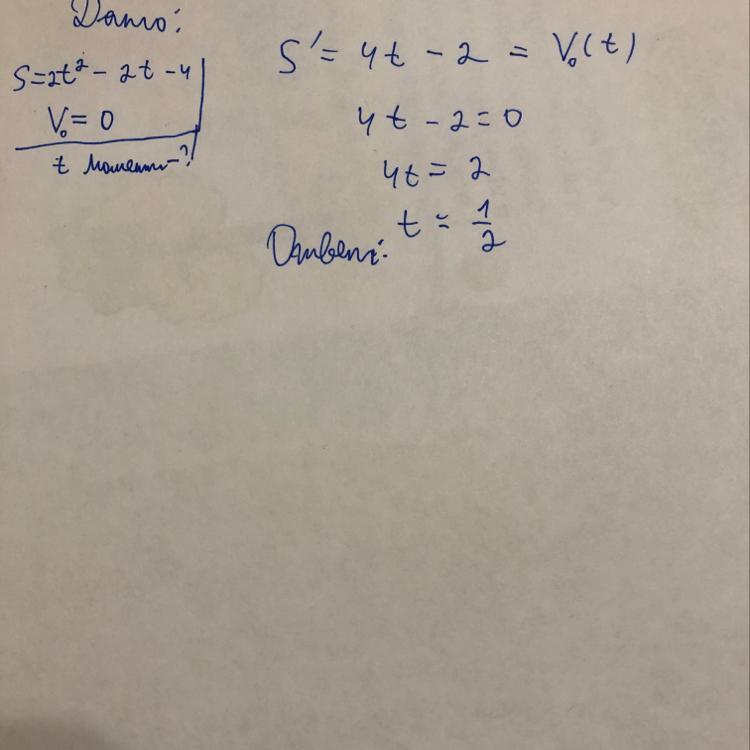 Дано:
S=2t² - 2t - 4
V₀ = 0
t момент-?
S' = 4t - 2 = V₀(t)
4t - 2 = 0
4t = 2
t = 1/2
Ответ: